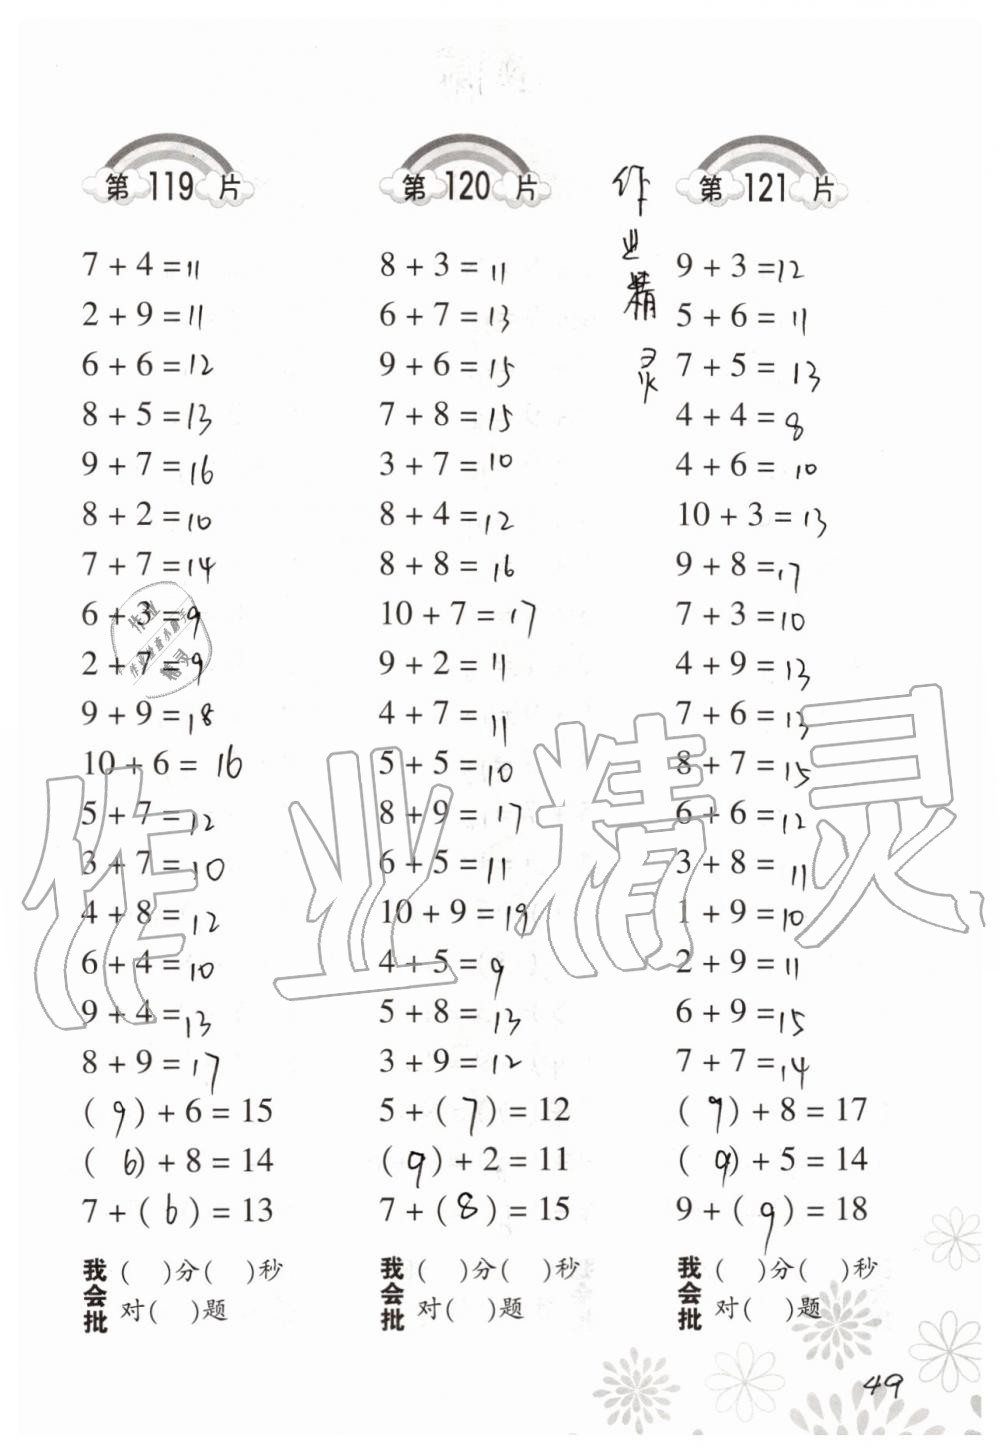 第119片
7 + 4 = 11
2 + 9 = 11
6 + 6 = 12
8 + 5 = 13
9 + 7 = 16
8 + 2 = 10
7 + 7 = 14
6 + 3 = 9
2 + 7 = 9
9 + 9 = 18
10 + 6 = 16
5 + 7 = 12
3 + 7 = 10
4 + 8 = 12
6 + 4 = 10
9 + 4 = 13
8 + 9 = 17
( 9 ) + 6 = 15
( 6 ) + 8 = 14
7 + ( 6 ) = 13
我会批
(  )分(  )秒
对(  )题
第120片
8 + 3 = 11
6 + 7 = 13
9 + 6 = 15
7 + 8 = 15
3 + 7 = 10
8 + 4 = 12
8 + 8 = 16
10 + 7 = 17
9 + 2 = 11
4 + 7 = 11
5 + 5 = 10
8 + 9 = 17
6 + 5 = 11
10 + 9 = 19
4 + 5 = 9
5 + 8 = 13
3 + 9 = 12
5 + ( 7 ) = 12
( 9 ) + 2 = 11
7 + ( 8 ) = 15
我会批
(  )分(  )秒
对(  )题
作业精灵
第121片
9 + 3 = 12
5 + 6 = 11
7 + 5 = 13
4 + 4 = 8
4 + 6 = 10
10 + 3 = 13
9 + 8 = 17
7 + 3 = 10
4 + 9 = 13
7 + 6 = 13
8 + 7 = 15
6 + 6 = 12
3 + 8 = 11
1 + 9 = 10
2 + 9 = 11
6 + 9 = 15
7 + 7 = 14
( 9 ) + 8 = 17
( 9 ) + 5 = 14
9 + ( 9 ) = 18
我会批
(  )分(  )秒
对(  )题
49
作业精灵